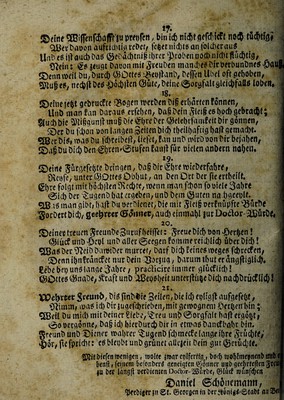 17.
Deine Wissenschafft zu preysen, bin ich nicht geschickt noch tüchtig,
Wer davon auffrichtig redet, setzet nichts an solcher aus
Und es ist auch das Gedächtniß ihrer Proben noch nicht flüchtig,
Nein: Es zeugt davon mit Freuden manches dir verbundnes Hauß,
Denn weil du, durch GOttes Beystand, dessen Übel oft gehoben,
Muß es, nechst des Höchsten Güte, deine Sorgfalt gleichfalls loben.
18.
Deine jetzt gedruckte Bogen werden diß erhärten können,
Und man kan daraus ersehen, daß dein Fleiß es hoch gebracht;
Auch die Mißgunst muß die Ehre der Gelehrsamkeit dir gönnen,
Der du schon von langen Zeiten dich theilhaftig hast gemacht.
Wer diß, was du schreibest, lieset, kan und wird von dir bejahen,
Daß du dich den Ehren-Stufen kanst für vielen andern nahen.
19.
Deine Fürgesetzte dringen, daß dir Ehre wiederfahre,
Reyse, unter GOttes Obhut, an den Ort der sie ertheilt.
Ehre folgt mit höchsten Recht, wenn man schon so viele Jahre
Sich der Tugend hat ergeben, und dem Guten nachgeeylt.
Was man gibt, hast du verdienet, die mit Fleiß verknüpfte Bürde
Fordert dich, geehrter Gönner, auch einmahl zur Doctor-Würde.
20.
Deiner treuen Freunde Zuruf heisset: Freue dich von Hertzen!
Glück und Heyl und aller Seegen komme reichlich über dich!
Was der Neid dawider murret, darf dich keines weges schrecken,
Denn ihn kräncket nur dein Vorzug, darum thut er ängstiglich.
Lebe bey uns lange Jahre, practicire immer glücklich!
GOttes Gnade, Kraft und Weysheit unterstütze dich nachdrücklich!
21.
Wehrter Freund, dis sind die Zeilen, die ich selbst aufgesetzt,
Nimm, was ich dir zugeschrieben, mit gewognem Hertzen hin;
Weil du mich mit deiner Liebe, Treu und Sorgfalt hast ergötzt,
So vergönne, daß ich hierdurch dir in etwas danckbahr bin.
Freund und Diener wahrer Tugend schmecke lange ihre Früchte,
Hör, sie spricht: es bleibt und grünet allezeit dein gut Gerüchte.
Mit diesen wenigen, wolte zwar eylfertig, doch wohlmeynend und
seinem besonders geneigten Gönner und geehrtesten Freunde
zu der längst verdienten Doctor-Würde, Glück wünschen
Daniel Schönemann,
Prediger zu St. Georgen in der Königs-Stadt zu